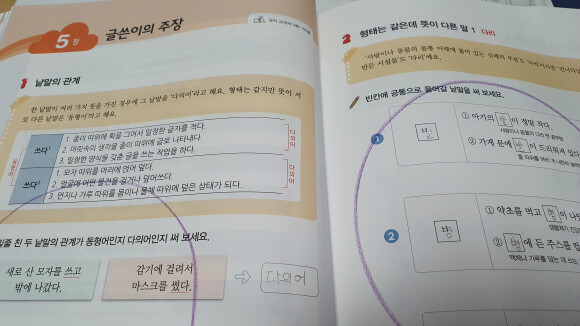 5장
글쓴이의 주장
1 낱말의 관계
한 낱말이 여러 가지 뜻을 가진 경우에 그 낱말을 '다의어'라고 해요. 형태는 같지만 뜻이 서
로 다른 낱말은 '동형어'라고 해요.
쓰다¹
1. 종이 따위에 획을 그어서 일정한 글자를 적다.
2. 머릿속의 생각을 종이 따위에 글로 나타내다.
3. 일정한 양식을 갖춘 글을 쓰는 작업을 하다.
다의어
동형어
쓰다²
1. 모자 따위를 머리에 얹어 덮다.
2. 얼굴에 어떤 물건을 걸거나 덮어쓰다.
3. 먼지나 가루 따위를 몸이나 물체 따위에 덮은 상태가 되다.
다의어
밑줄 친 두 낱말의 관계가 동형어인지 다의어인지 써 보세요.
새로 산 모자를 쓰고
밖에 나갔다.
감기에 걸려서
마스크를 썼다.
다의어
2 형태는 같은데 뜻이 다른 말 1 다리
'사람이나 동물의 몸통 아래에 붙어 있는
만든 시설물'도 '다리'예요.
빈칸에 공통으로 들어갈 낱말을 써 보세요.
1
발
① 아기의 발이 정말 작다.
② 가게 문에 발이 드리워져 있
2
병
① 약초를 먹고 병이 나
② 병에 든 주스를 컵